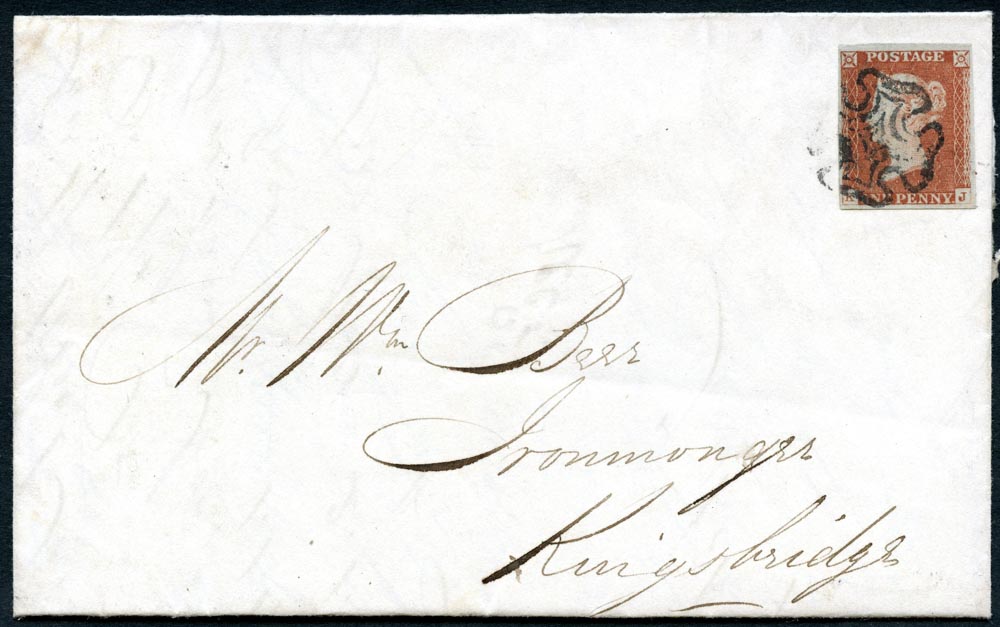 POSTAGE
ONE PENNY
K J
Mr. Wm. Beer
Ironmonger
Kingsbridge